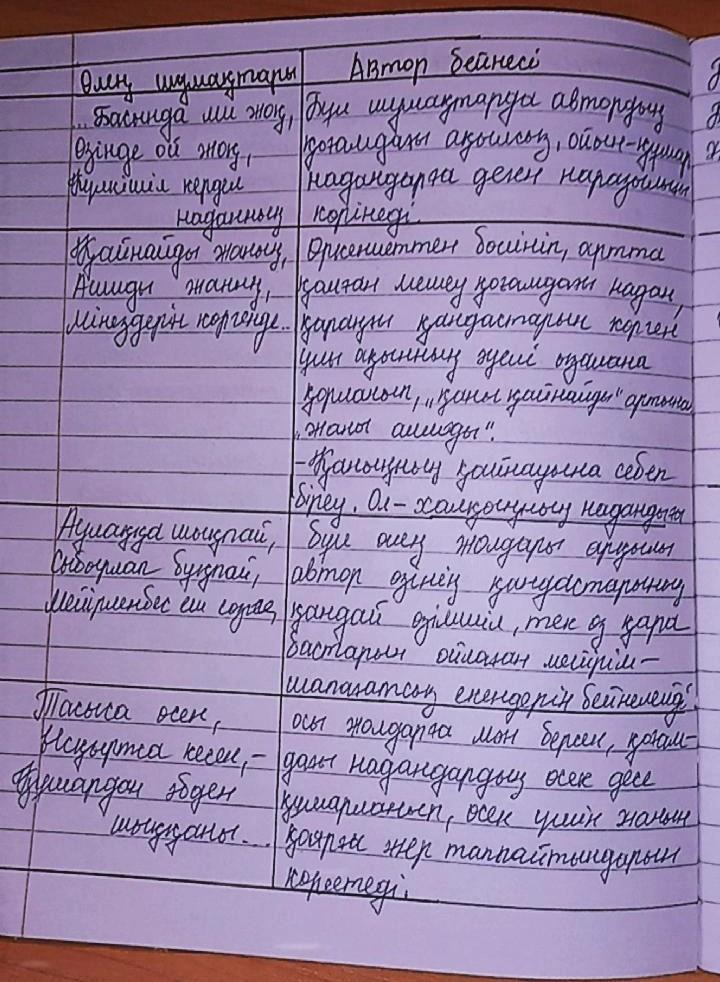 Өлең шумақтары
Автор бейнесі
... Басында ми жоқ,
Өзінде ой жоқ,
Күлкішіл кердең
наданның
Бұл шумақтарда автордың
қоғамдағы ақылсыз, ойын-құмар
надандарға деген наразылығы
көрінеді.
Қайнайды қаның,
Ашиды жаның,
Мінездерін көргенде...
Өркениеттен бөлініп, артта
қалған мешеу қоғамдағы надан,
қараңғы қандастарын көрген
ұлы ақынның
қорланып, „қаны қайнайды" артынан
„жаны ашиды".
- Қанының қайнауына себеп
біреу. Ол - халқының надандығы
Аулаққа шықпай,
Сыбырлап бұқпай,
Мейірленбес еш сөзге,
бұл өлең жолдары арқылы
автор өзінің қандастарының
қандай өзімшіл, тек өз қара
бастарын ойлаған мейірім-
шапағатсыз екендерін бейнелейді.
Тасыса өсек,
Ысқыртса кесек, -
Құмардан әбден
шыққаны...
осы жолдарға мән берсек, қоғам-
дағы надандардың өсек десе
құмарланып, өсек үшін жанын
қоярға жер таппайтындарын
көрсетеді.